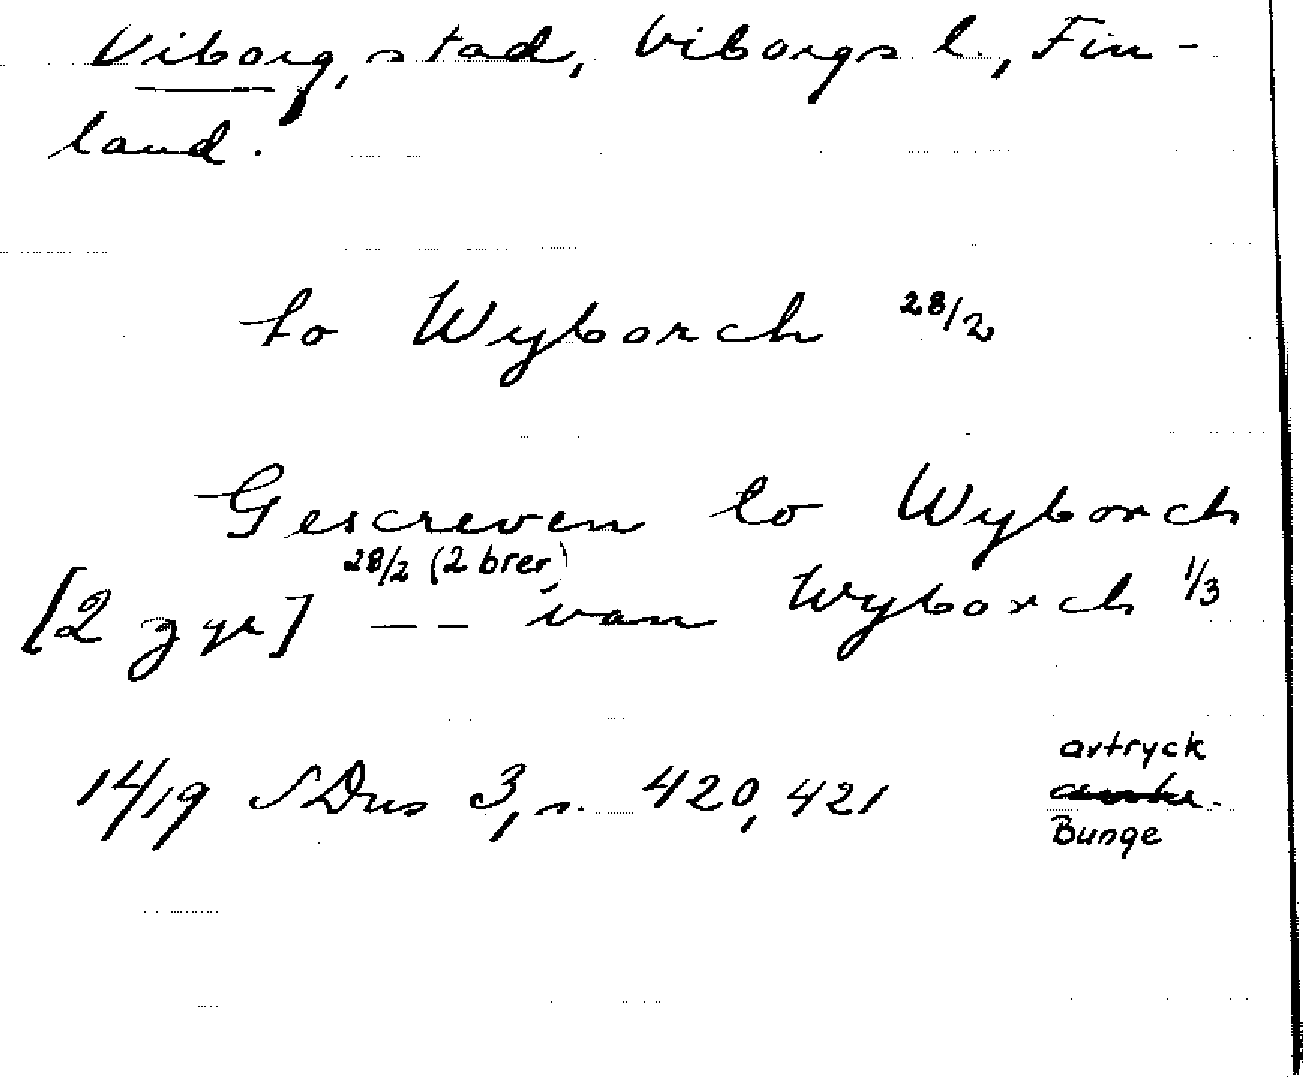 Viborg, stad, Viborgs l., Fin-
land.
to Wyborch 28/2
Gescreven to Wyborch
28/2 (2 brev)
[2 ggr] -- van Wyborch 1/3
1419 SDns 3, s. 420, 421
avtryck
Bunge